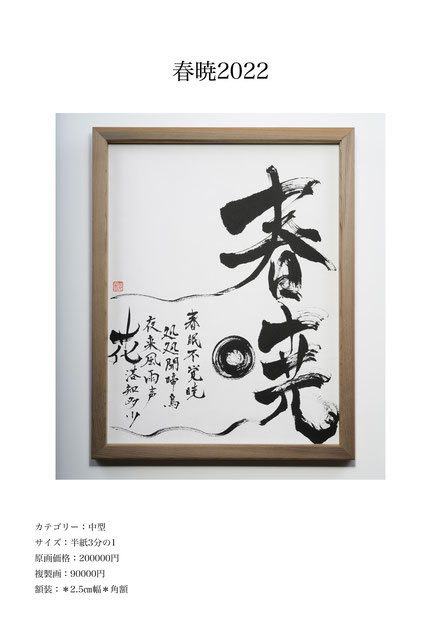 春暁2022
春暁
春眠不覚暁
処処聞啼鳥
夜来風雨声
花落知多少
カテゴリー：中型
サイズ：半紙3分の1
原画価格：200000円
複製画：90000円
額装：＊2.5㎝幅＊角額